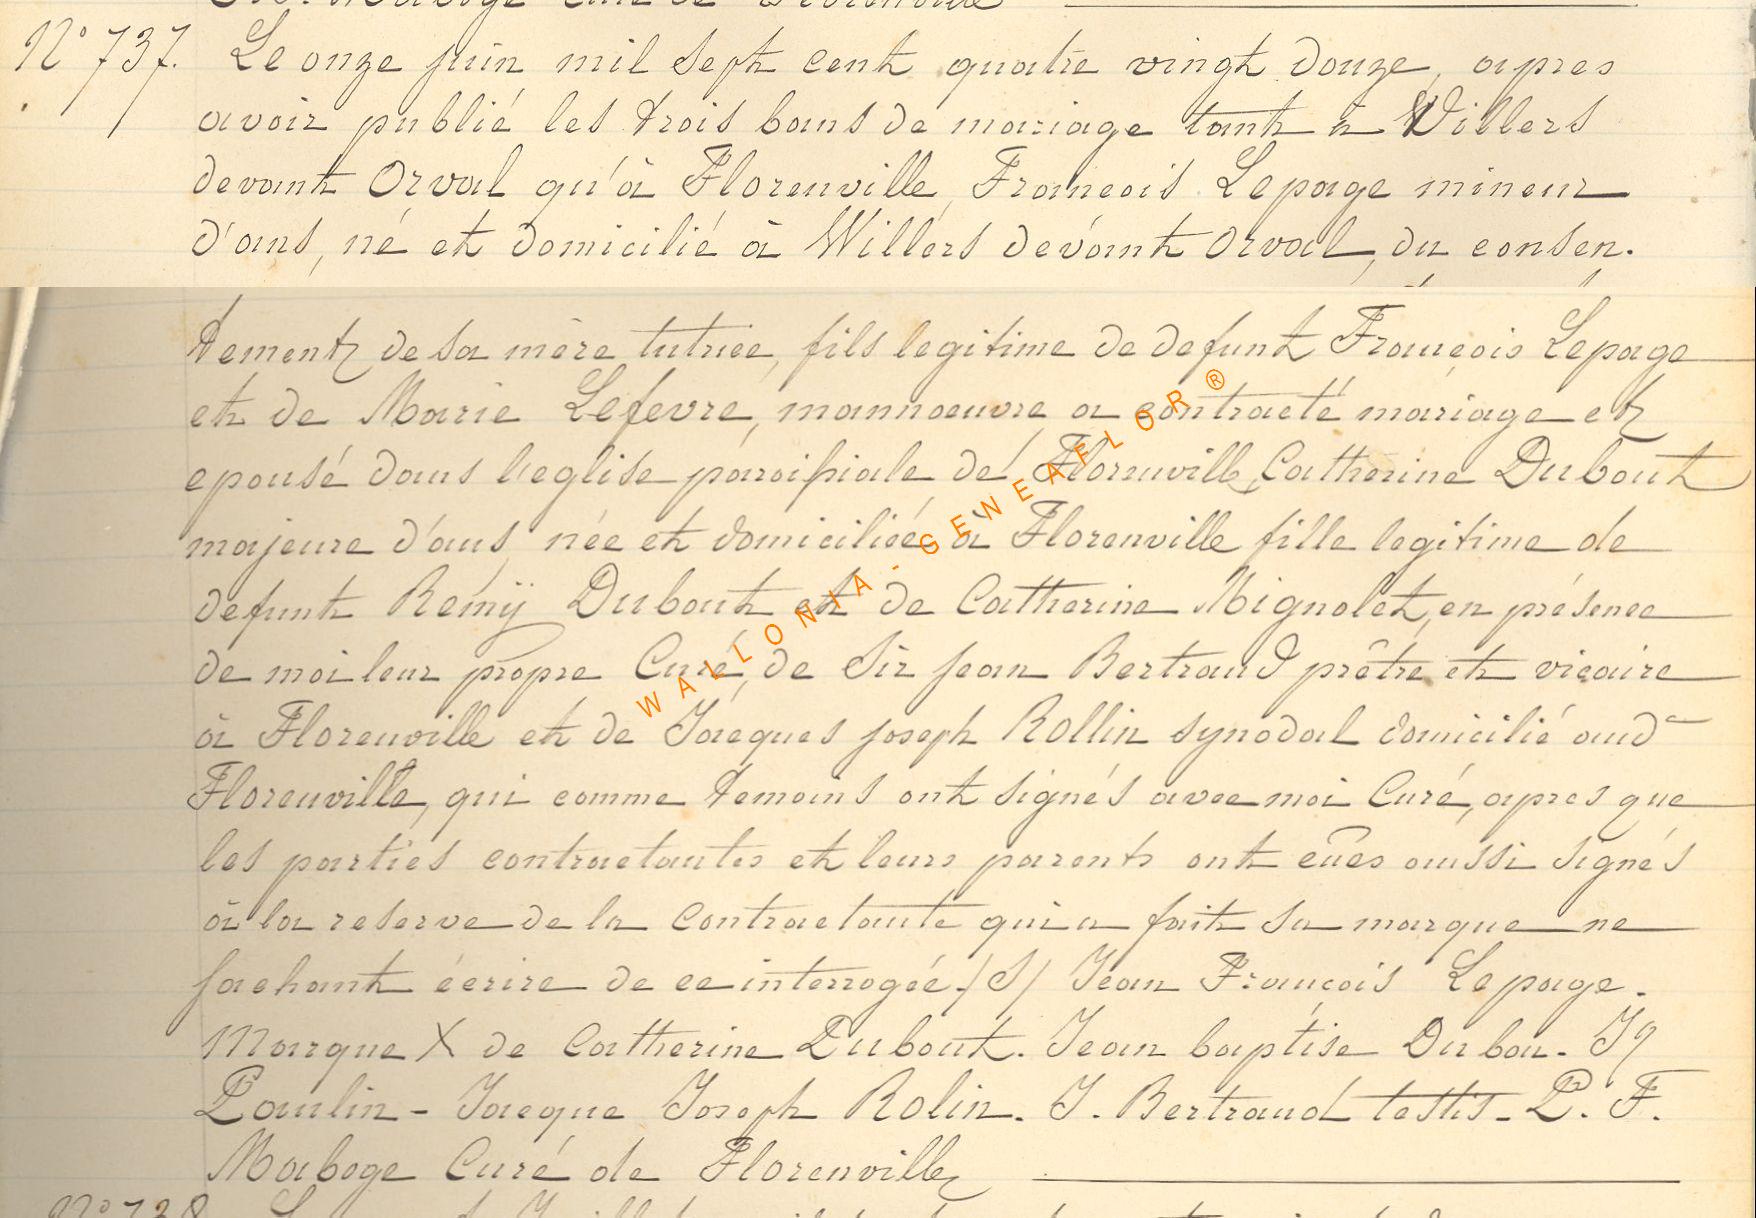 N° 737. Le onze juin mil sept cent quatre vingt douze, apres
avoir publié les trois bans de mariage tant à Villers
devant Orval qu'à Florenville, François Lepage mineur
d'ans, né et domicilié à Villers devant Orval, du consen-
tement de sa mère tutrice, fils legitime de defunt François Lepage
et de Marie Lefevre, mannoeuvre, a contracté mariage et
epousé dans l'eglise paroissiale de Florenville, Catherine Dubout
majeure d'ans, née et domiciliée à Florenville fille legitime de
defunt Remÿ Dubout et de Catherine Mignolet, en présence
de moi leur propre Curé, de Sir jean Bertrand prêtre et vicaire
à Florenville et de Jacques joseph Rollin synodal domicilié aud
Florenville, qui comme temoins ont signés avec moi Curé, apres que
les parties contractantes et leurs parents ont eûes aussi signés
à la reserve de la contractante qui a fait sa marque ne
sachant écrire de ce interrogée. /S/ Jean François Lepage.
Marque X de Catherine Dubout. Jean baptise Dubou. J
Paulin - Jacque Joseph Rolin. J. Bertrand testis - P. F.
Maboge Curé de Florenville
N° 738
WALLONIA - GEWEAFLOR ®